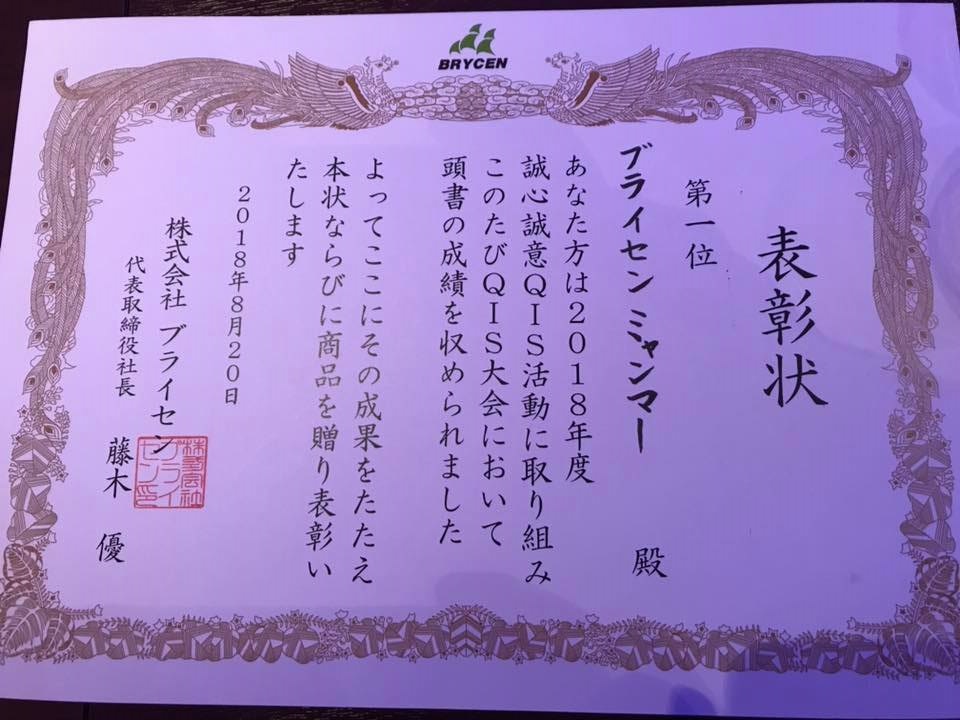 BRYCEN
表彰状
第一位
ブライセン ミャンマー 殿
あなた方は2018年度
誠心誠意QIS活動に取り組み
このたびQIS大会において
頭書の成績を収められました
よってここにその成果をたたえ
本状ならびに商品を贈り表彰い
たします
2018年8月20日
株式会社 ブライセン
代表取締役社長 藤木 優
株式会社
ブライ
セン印